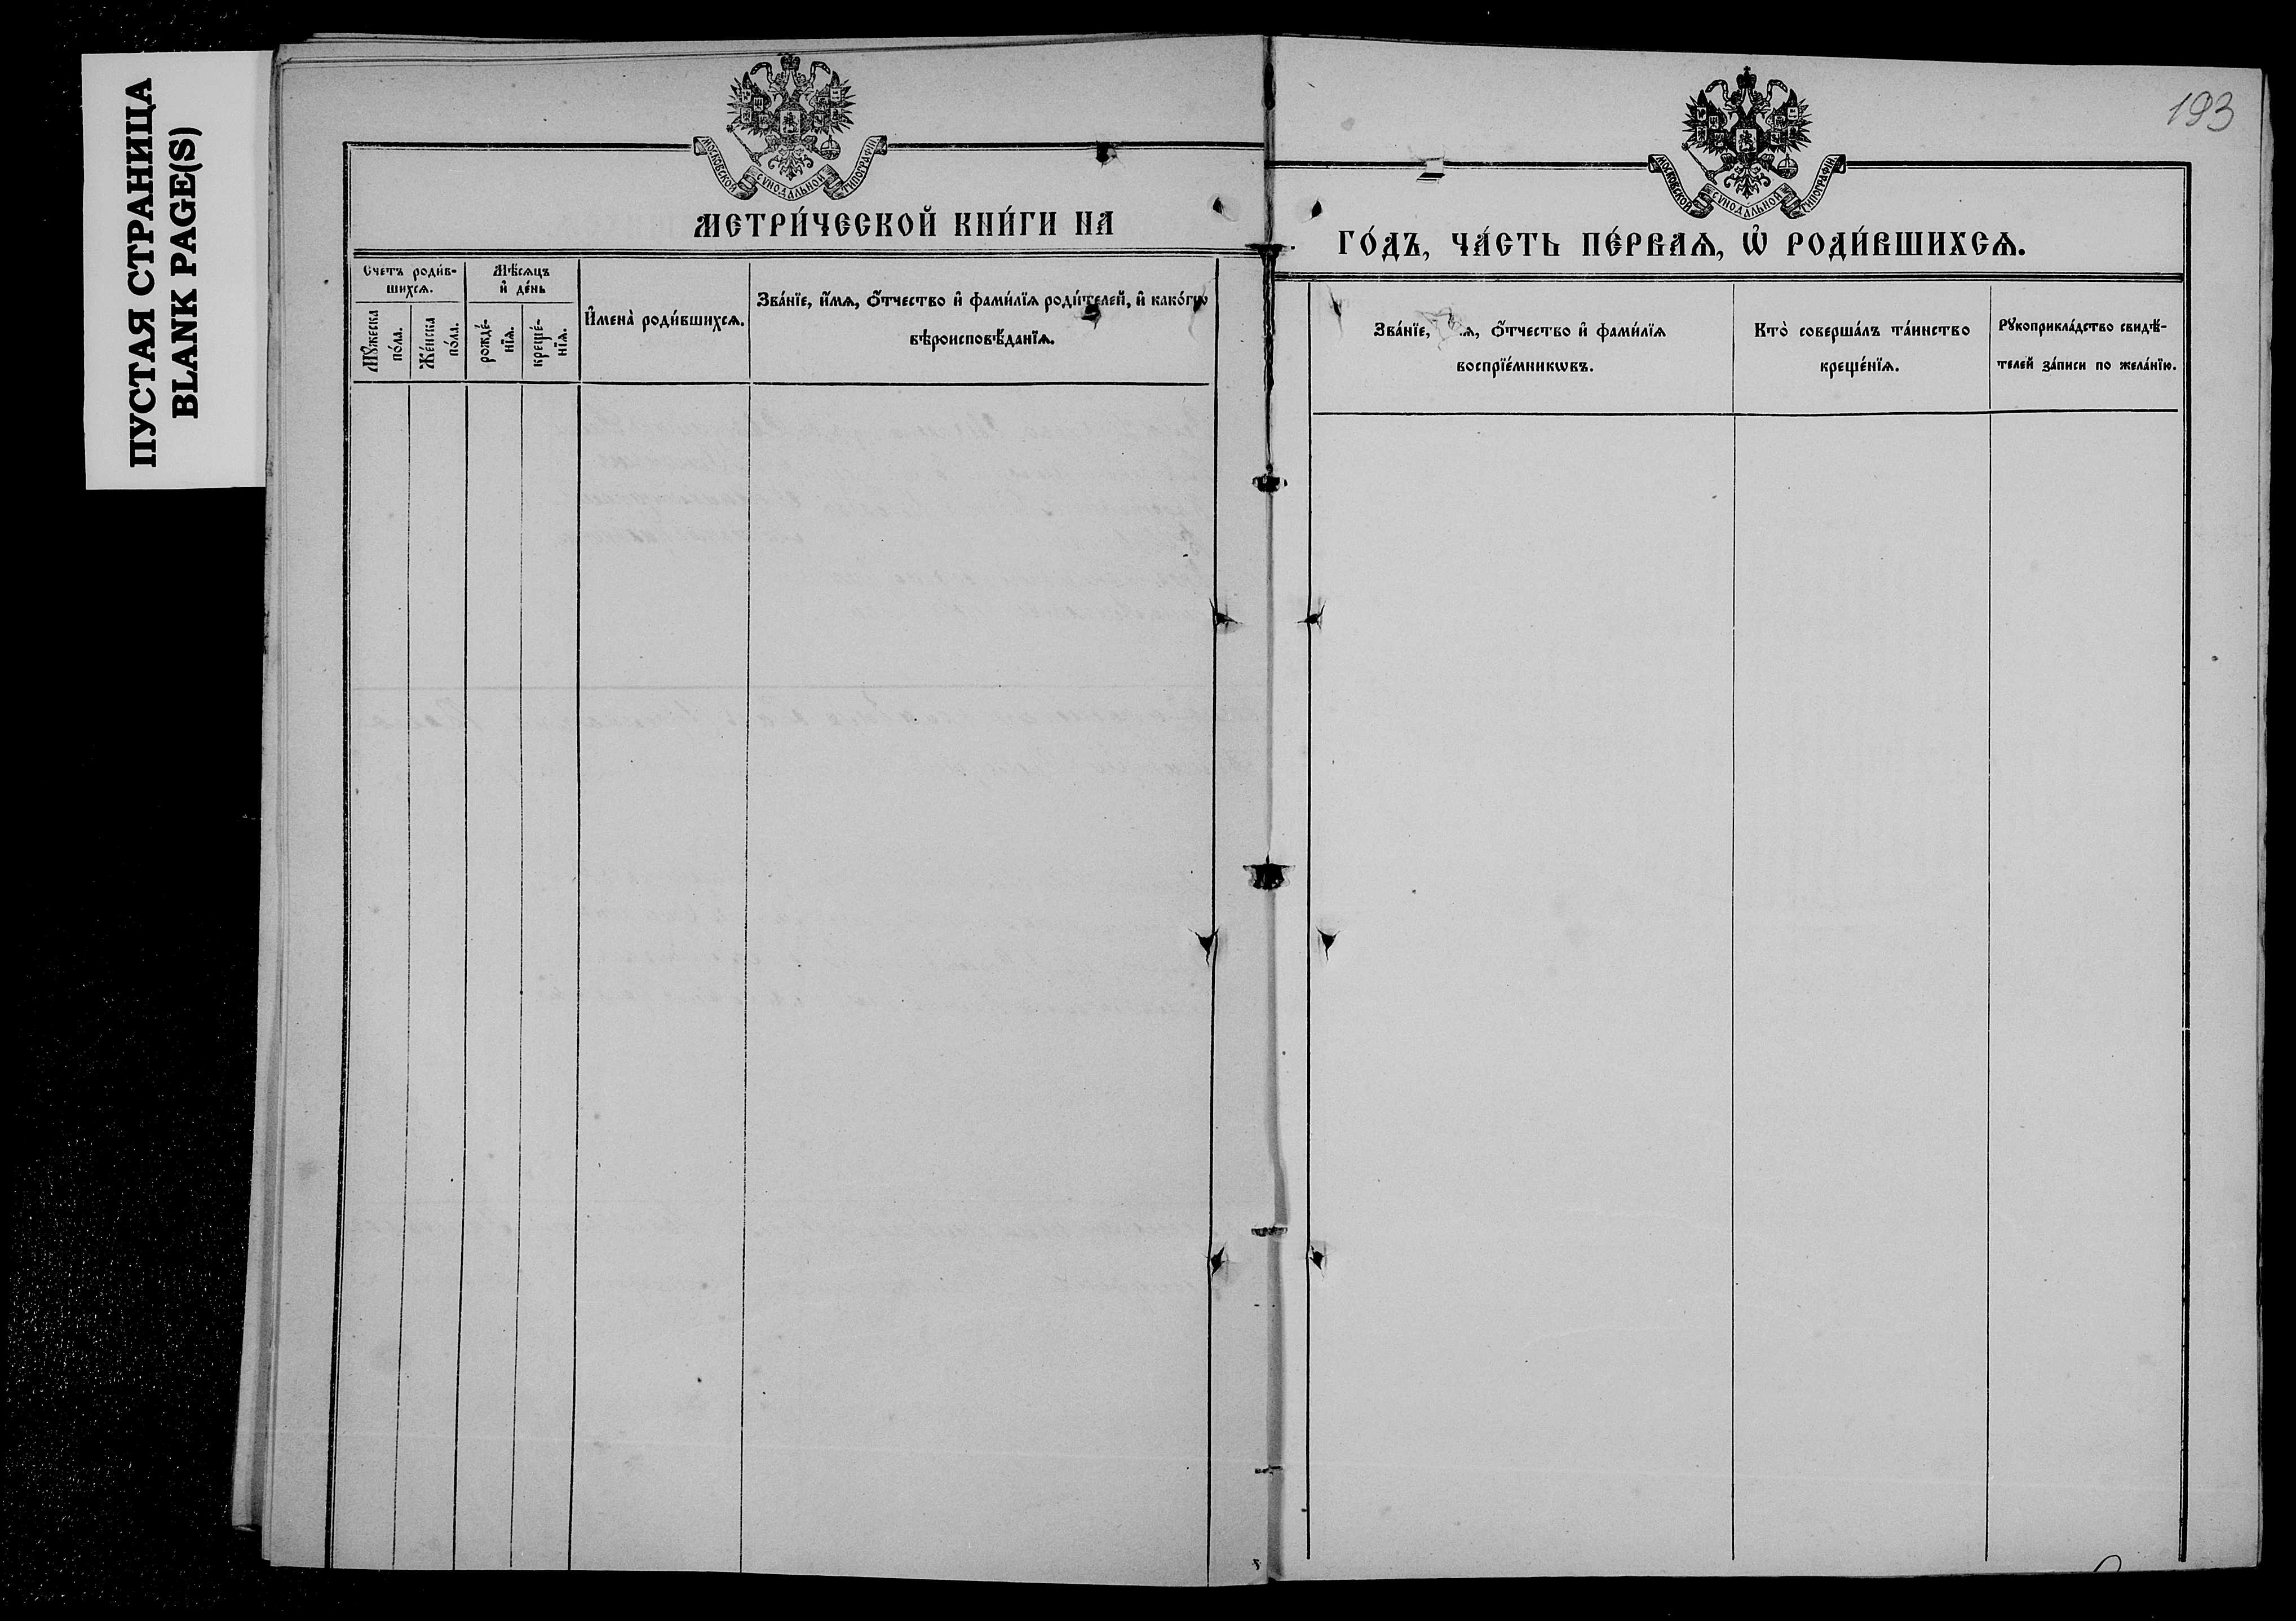 ПУСТАЯ СТРАНИЦА
BLANK PAGE(S)
МОСКОВСКОЙ СѴНОДАЛЬНОЙ ТИПОГРАФІИ
МЕТРИ́ЧЕСКОЙ КНИ́ГИ НА
Счетъ роди́в-
шихсѧ.
Мѣ́сѧцъ
и҆ де́нь
Мꙋ́жеска
по́ла.
Же́нска
по́ла.
рожде́-
нїѧ.
креще́-
нїѧ.
И҆мена̀ роди́вшихсѧ.
Зва́нїе, и҆́мѧ, ѻ҆́тчество и҆ фами́лїѧ роди́телей, и҆ како́гѡ
вѣроисповѣ́данїѧ.
193
МОСКОВСКОЙ СѴНОДАЛЬНОЙ ТИПОГРАФІИ
ГО́ДЪ, ЧА́СТЬ ПЕ́РВАѦ, Ѡ҆ РОДИ́ВШИХСѦ.
Зва́нїе, ѻ҆́тчество и҆ фами́лїѧ
воспрїе́мникѡвъ.
Кто̀ соверша́лъ та́инство
креще́нїѧ.
Рꙋкоприкла́дство свидѣ́-
телей за́писи по жела́нїю.